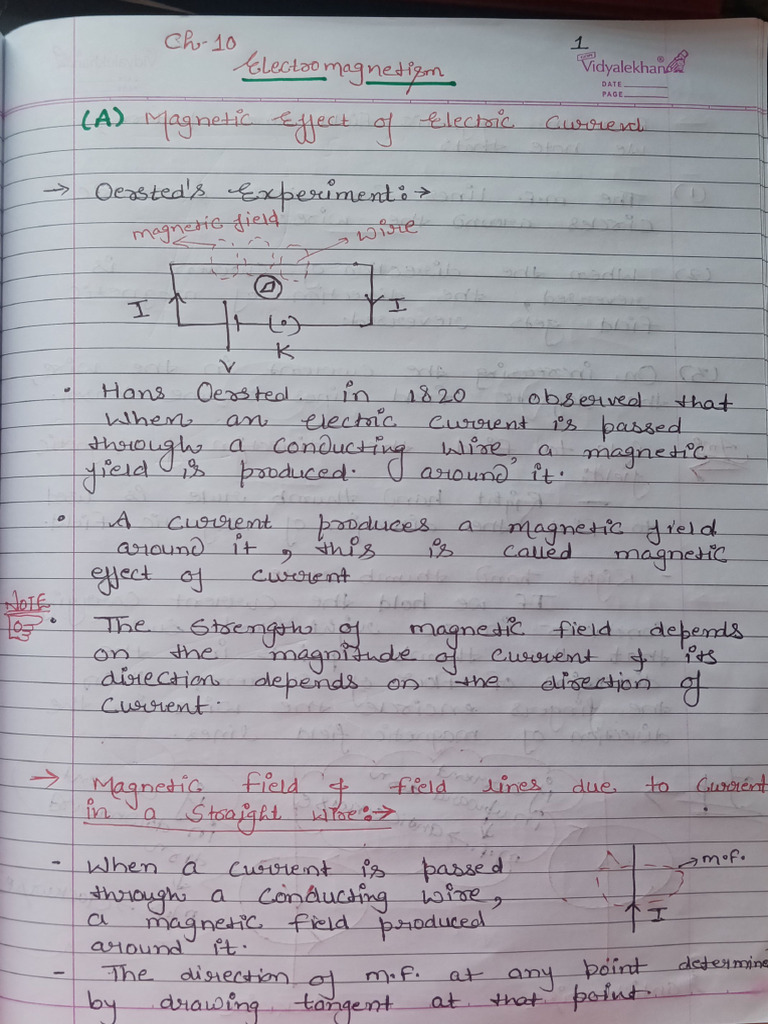 Ch-10
1
Electromagnetism
Vidyalekhan
DATE
PAGE
(A) Magnetic Effect of Electric Current
→ Oersted's Experiment:→
magnetic field
wire
I
I
K
V
• Hans Oersted in 1820 observed that
when an electric current is passed
through a conducting wire, a magnetic
yield is produced. around it.
• A current produces a magnetic yield
around it, this is called magnetic
effect of current
NOTE
• The strength of magnetic field depends
on the magnitude of current & its
direction depends on the direction of
current.
→ Magnetic field & field lines due to Current
in a Straight Wire:→
- When a current is passed
through a conducting wire,
a magnetic field produced
around it.
m.f.
I
- The direction of m.f. at any point determine
by drawing tangent at that point.